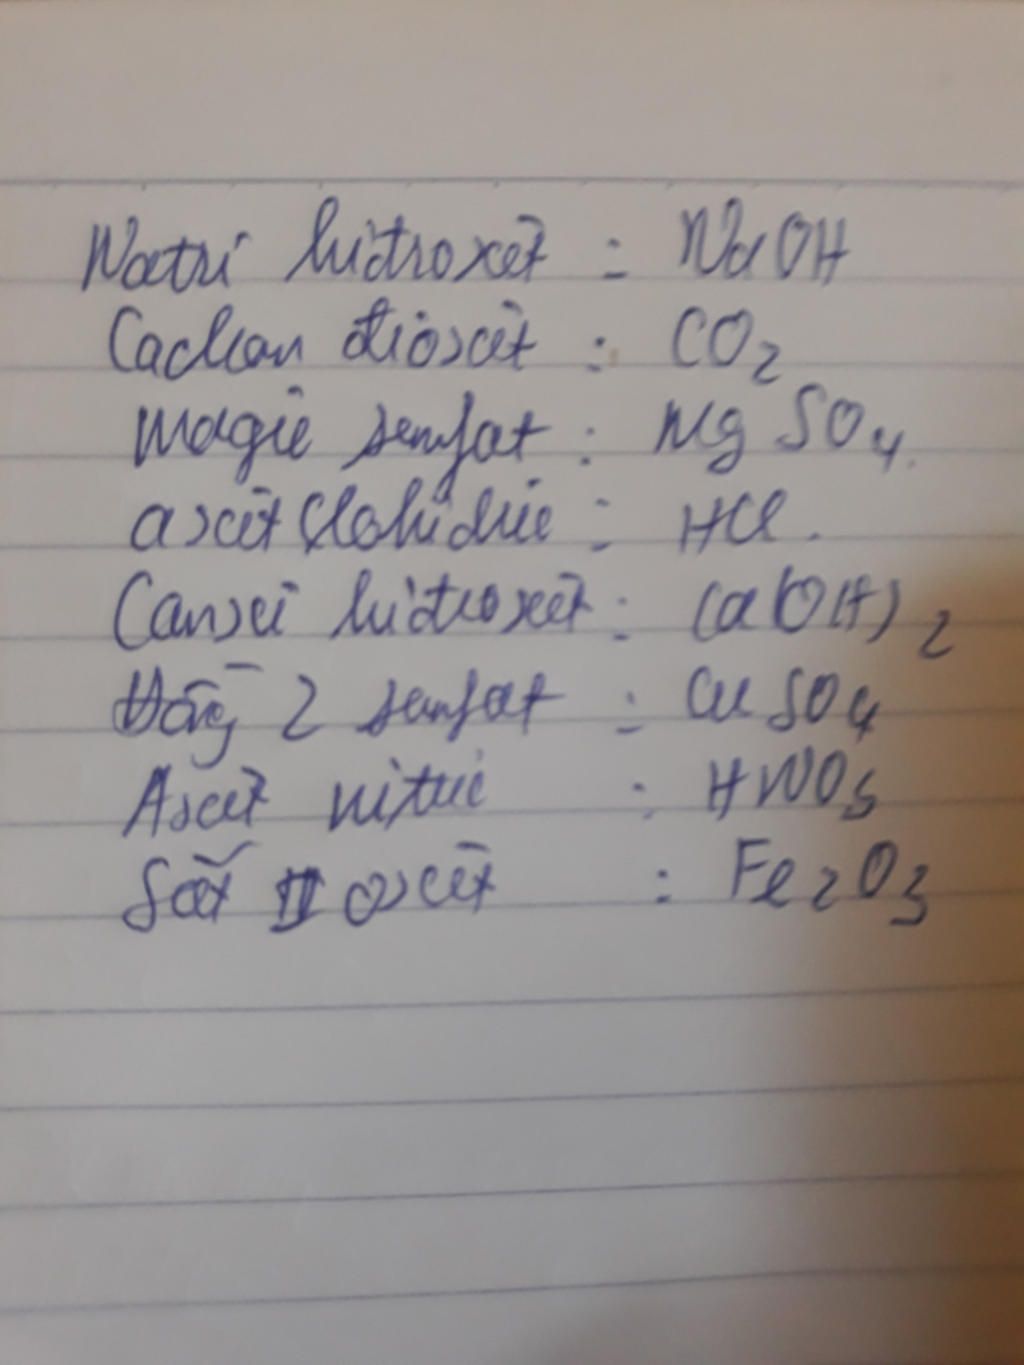 Natri hidroxet : NaOH
Cacbon đioxit : CO2
Magie senfat : MgSO4.
axit Clohidric : HCl.
Canxi hidroxet : Ca(OH)2
Đồng 2 senfat : CuSO4
Axet nitric : HNO3
Sắt II oxit : Fe2O3